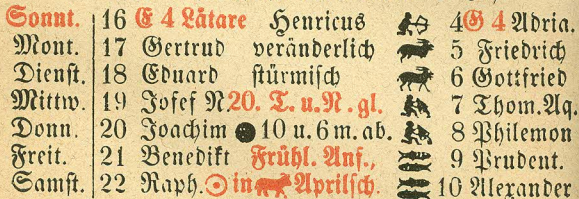 Sonnt. 16 E 4 Lätare Henricus 4 G 4 Adria.
Mont. 17 Gertrud veränderlich 5 Friedrich
Dienst. 18 Eduard stürmisch 6 Gottfried
Mittw. 19 Josef N. 20. T. u. N. gl. 7 Thom. Aq.
Donn. 20 Joachim 10 u. 6 m. ab. 8 Philemon
Freit. 21 Benedikt Frühl. Anf., 9 Prudent.
Samst. 22 Raph. in Aprilsch. 10 Alexander